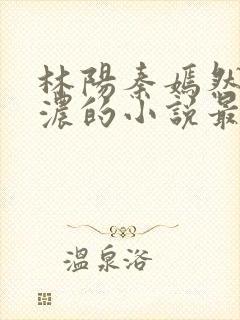 林陽秦嫣然
濃的小說最
溫泉浴